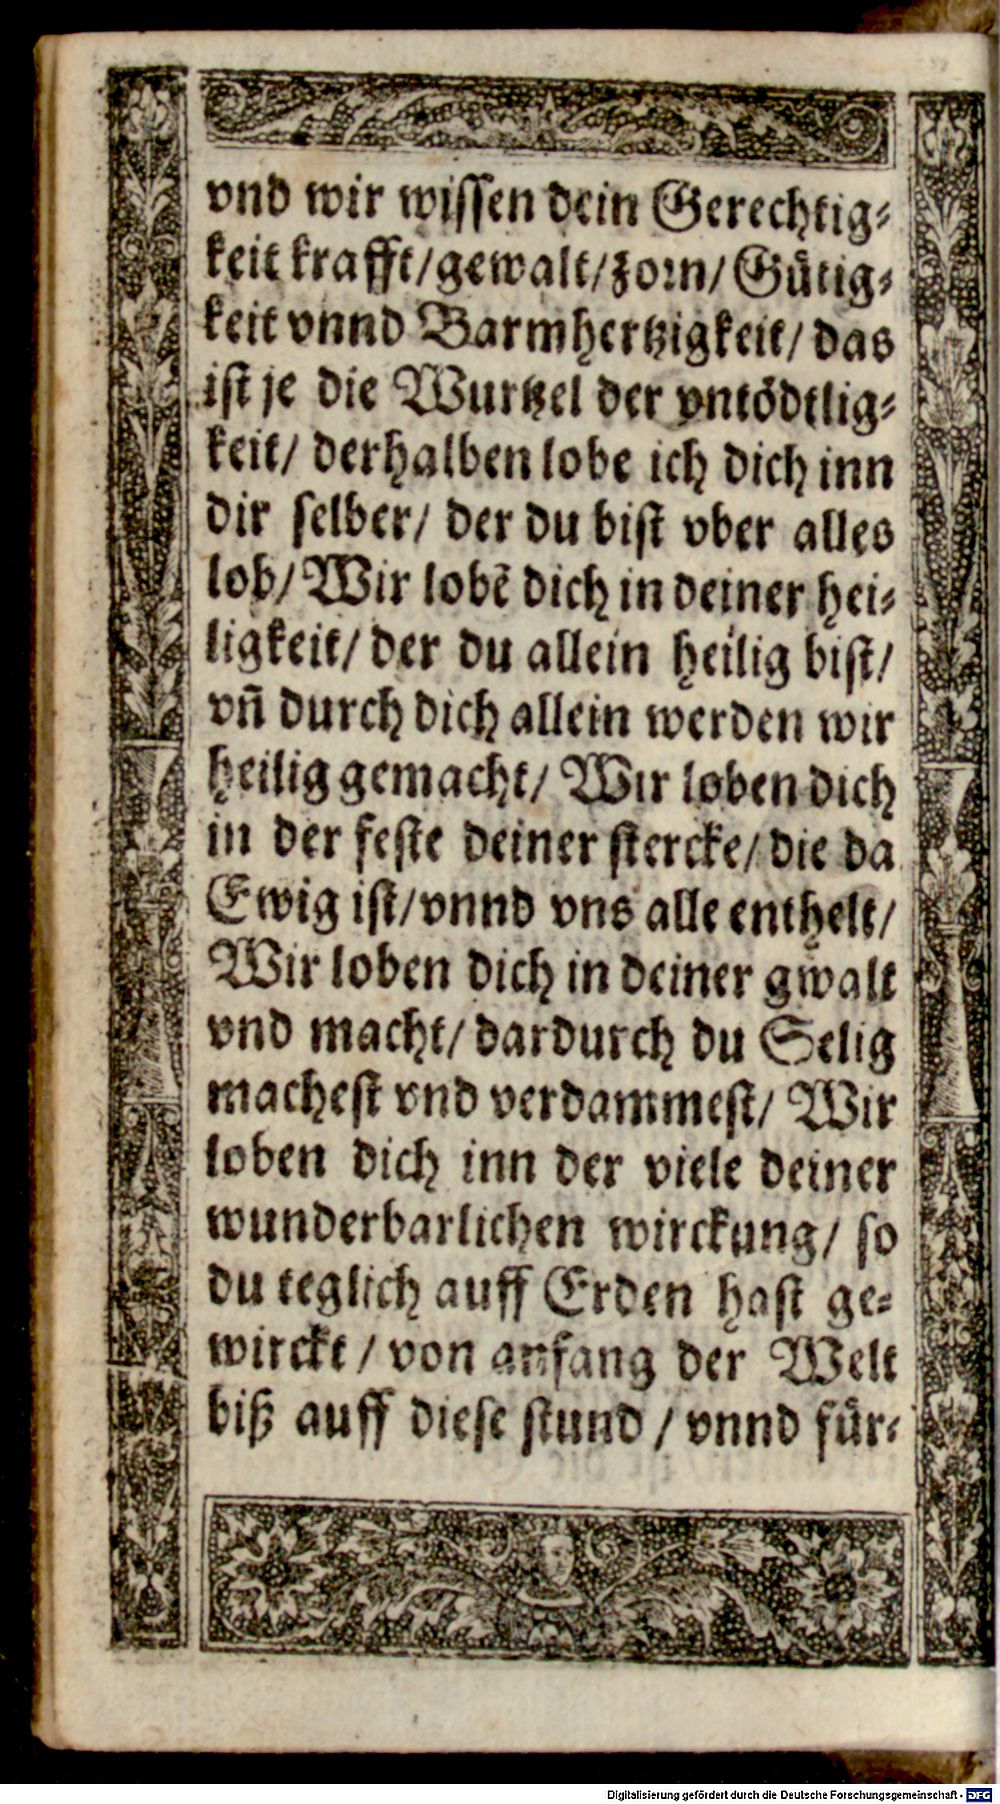 vnd wir wissen dein Gerechtig⸗
keit krafft/gewalt/zorn/Gütig⸗
keit vnnd Barmhertzigkeit/ das
ist je die Wurtzel der vntödtlig⸗
keit/ derhalben lobe ich dich inn
dir selber/ der du bist vber alles
lob/ Wir lobē dich in deiner hei⸗
ligkeit/ der du allein heilig bist/
vn̄ durch dich allein werden wir
heilig gemacht/ Wir loben dich
in der feste deiner stercke/ die da
Ewig ist/vnnd vns alle enthelt/
Wir loben dich in deiner gwalt
vnd macht/ dardurch du Selig
machest vnd verdammest/ Wir
loben dich inn der viele deiner
wunderbarlichen wirckung/ so
du teglich auff Erden hast ge⸗
wirckt / von anfang der Welt
biß auff diese stund / vnnd für⸗
Digitalisierung gefördert durch die Deutsche Forschungsgemeinschaft - DFG